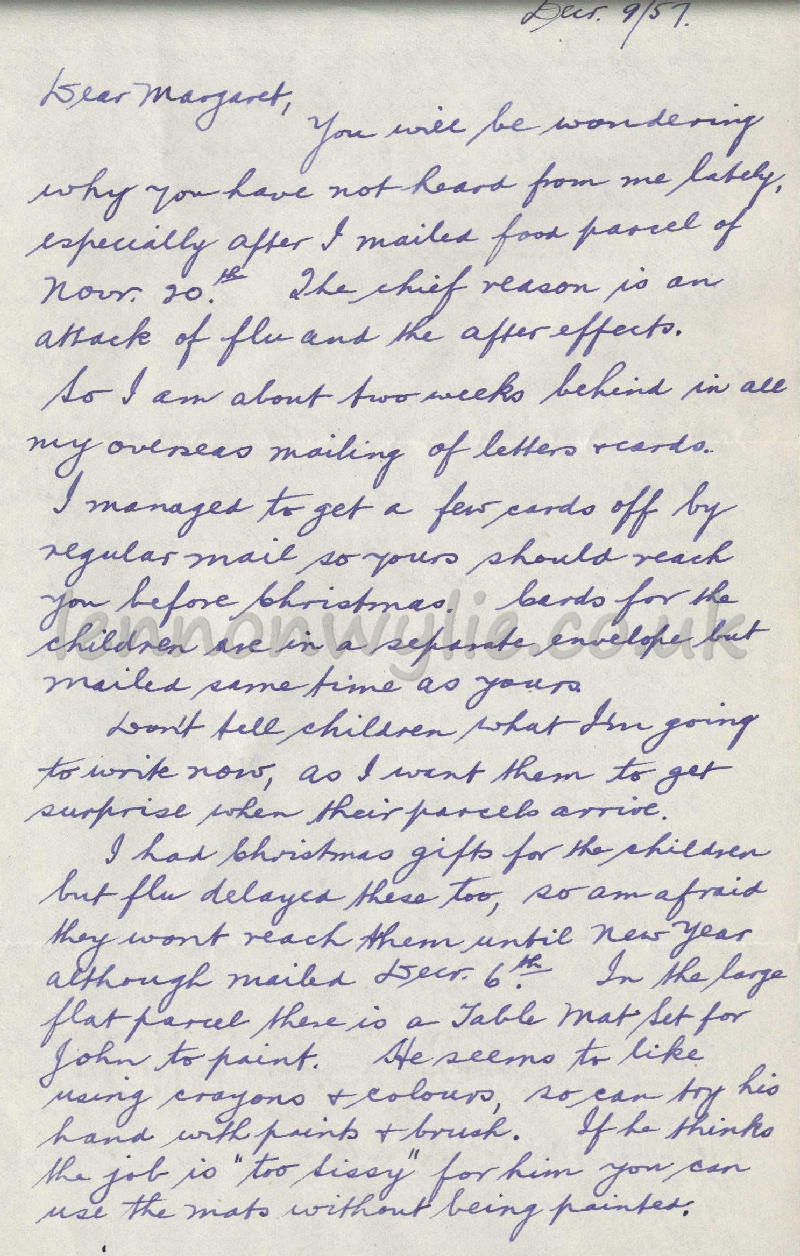 Decr. 9/57.
Dear Margaret,
You will be wondering
why you have not heard from me lately,
especially after I mailed food parcel of
Novr. 20.th The chief reason is an
attack of flu and the after effects.
So I am about two weeks behind in all
my overseas mailing of letters & cards.
I managed to get a few cards off by
regular mail so yours should reach
you before Christmas. Cards for the
children are in a separate envelope but
mailed same time as yours.
Don't tell children what I'm going
to write now, as I want them to get
surprise when their parcels arrive.
I had Christmas gifts for the children
but flu delayed these too, so am afraid
they wont reach them until New Year
although mailed Decr. 6.th In the large
flat parcel there is a Table Mat Set for
John to paint. He seems to like
using crayons & colours, so can try his
hand with paints & brush. If he thinks
the job is "too sissy" for him you can
use the mats without being painted.
lennonwylie.co.uk